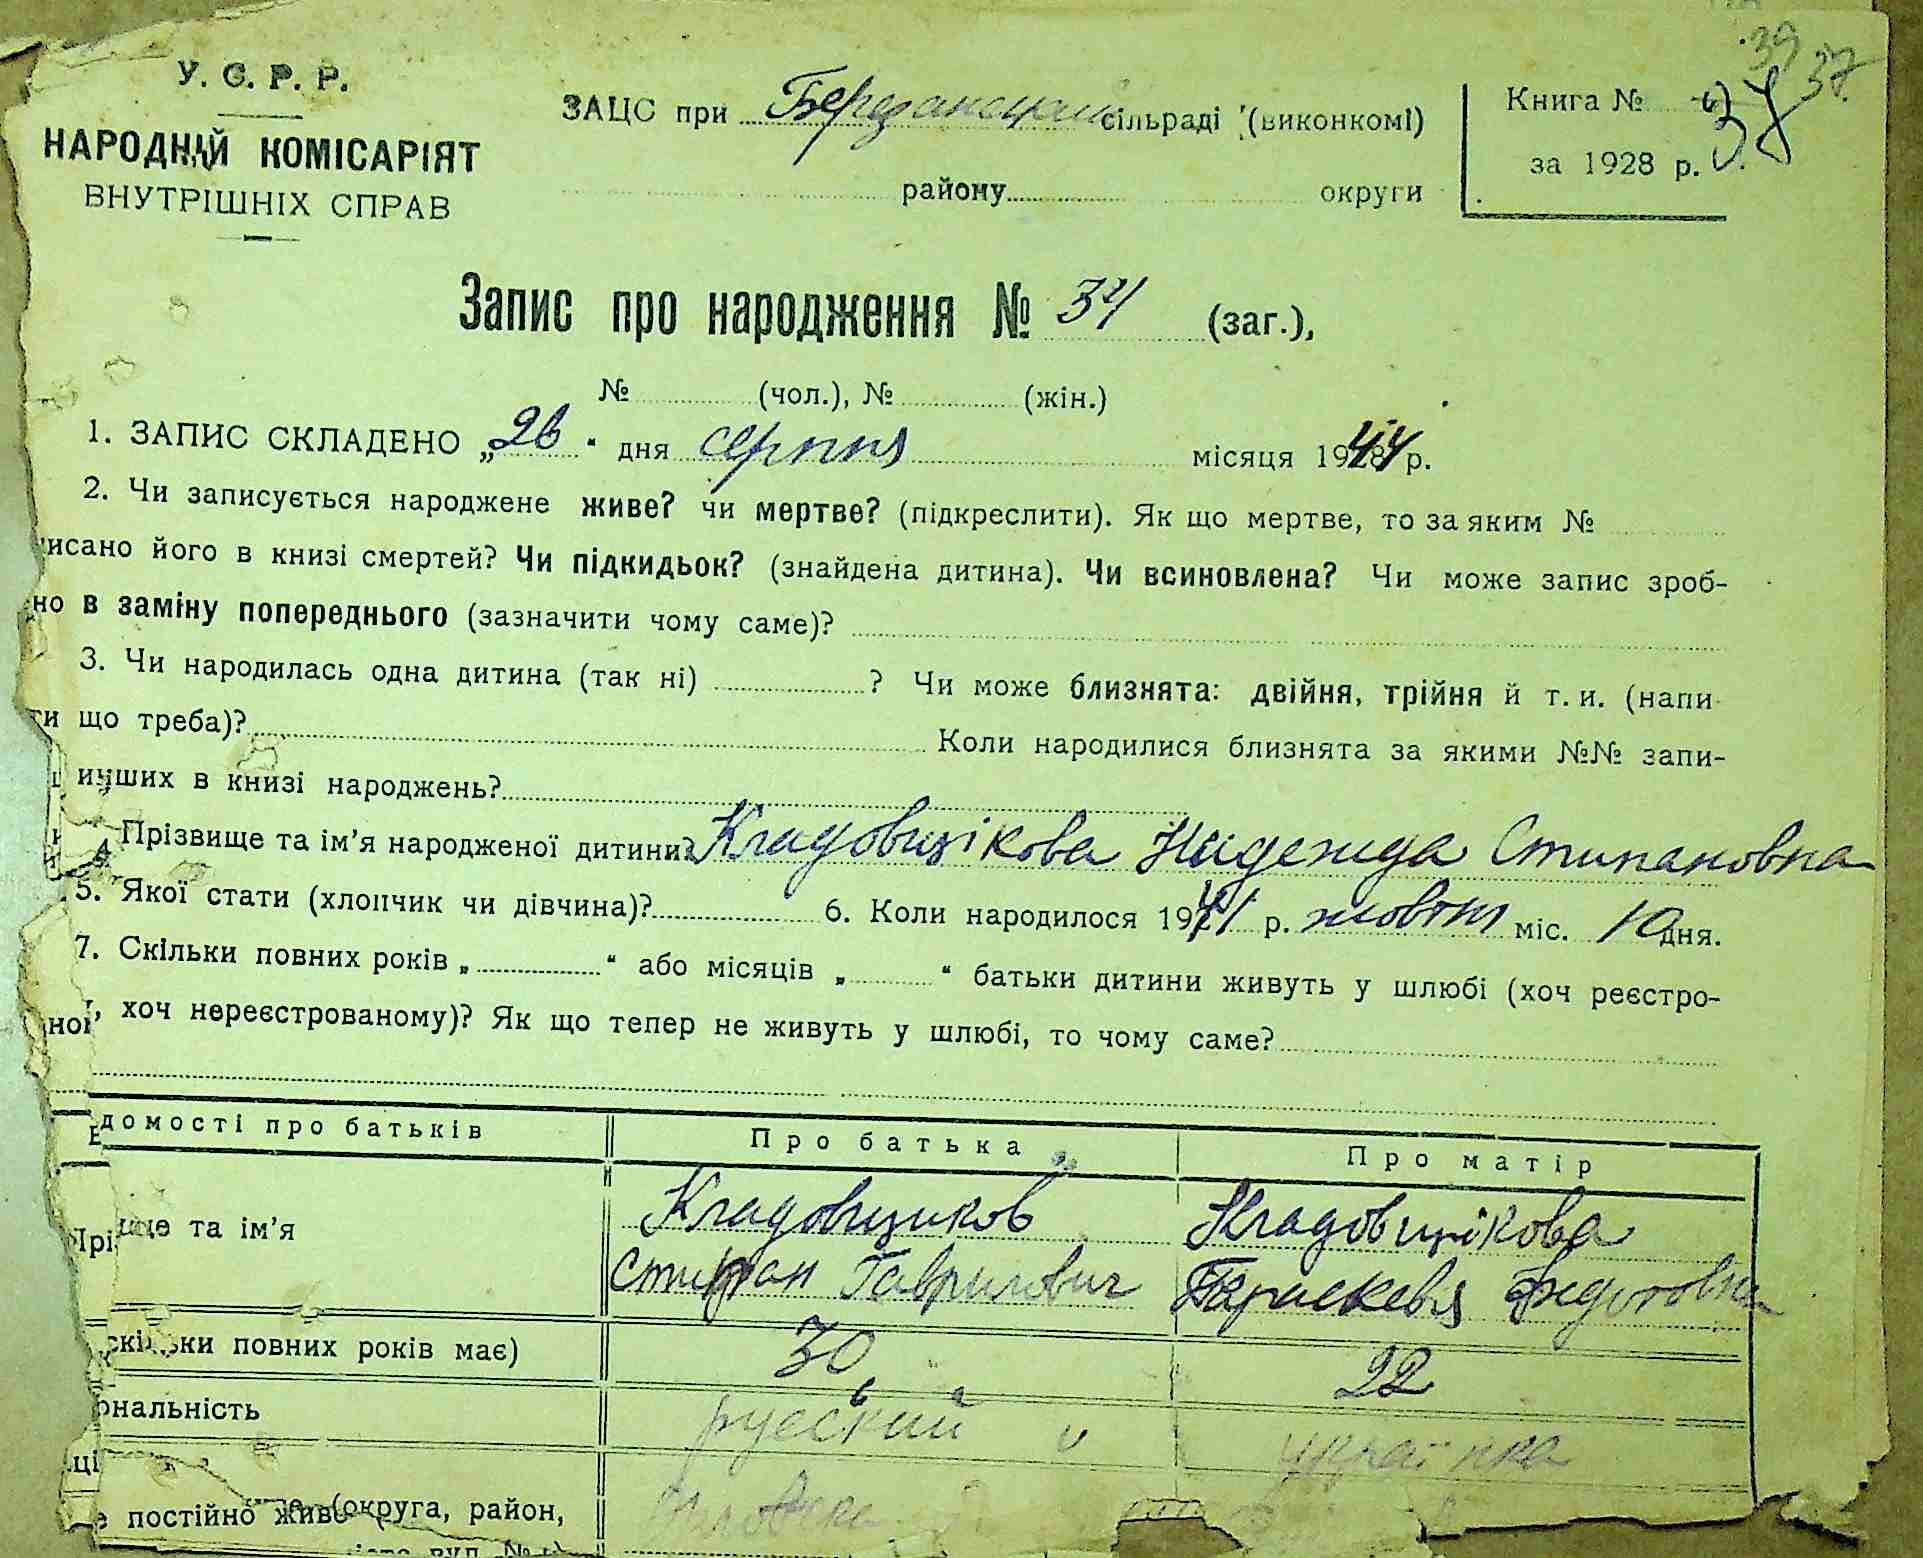 39 37
У. С. Р. Р.
НАРОДНИЙ КОМІСАРІЯТ
ВНУТРІШНІХ СПРАВ
ЗАЦС при сільраді (виконкомі)
району округи
Книга №
за 1928 р.
Запис про народження № 34 (заг.),
№ (чол.), № (жін.)
1. ЗАПИС СКЛАДЕНО „26“ дня серпня місяця 1944 р.
2. Чи записується народжене живе? чи мертве? (підкреслити). Як що мертве, то за яким №
писано його в книзі смертей? Чи підкидьок? (знайдена дитина). Чи всиновлена? Чи може запис зроб-
но в заміну попереднього (зазначити чому саме)?
3. Чи народилась одна дитина (так ні) ? Чи може близнята: двійня, трійня й т. и. (напи
ти що треба)? Коли народилися близнята за якими №№ запи-
инших в книзі народжень?
4. Прізвище та ім’я народженої дитини? Кладовщікова Надежда Стипановна
5. Якої стати (хлопчик чи дівчина)? 6. Коли народилося 1941 р. жовтня міс. 10 дня.
7. Скільки повних років „ “ або місяців „ “ батьки дитини живуть у шлюбі (хоч реєстро-
, хоч нереєстрованому)? Як що тепер не живуть у шлюбі, то чому саме?
домості про батьків Про батька Про матір
ще та ім’я Кладовщиков Кладовщікова
Стипан Гаврилович Параскевія Федотовна
скільки повних років має) 30 22
ональність русский українка
постійно живе (округа, район,